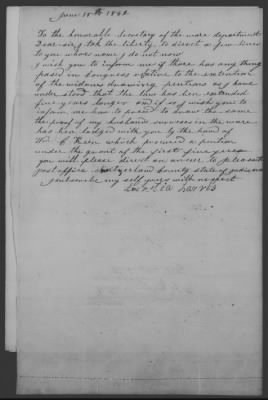 June 18th 1842
To the honorable Secretary of the ware department
Dear sir I tak the liberty to direct a few lines
to you whose name I do not now
I wish you to inform me if there has any thing
pased in Congress relative to the extention
of the widows drawing pentions as I have
understood that the law has ben extended
five years longer and if so I wish you to
inform me how to proceed to draw the same
the proof of my husbands survises in the ware
has ben lodged with you by the hand of
Wm C Keen which procured a pention
under the grant of the first five years
you will please direct an ancer to pleasant
post office Switzerland County state of indiana
I subscribe my self yours with respect